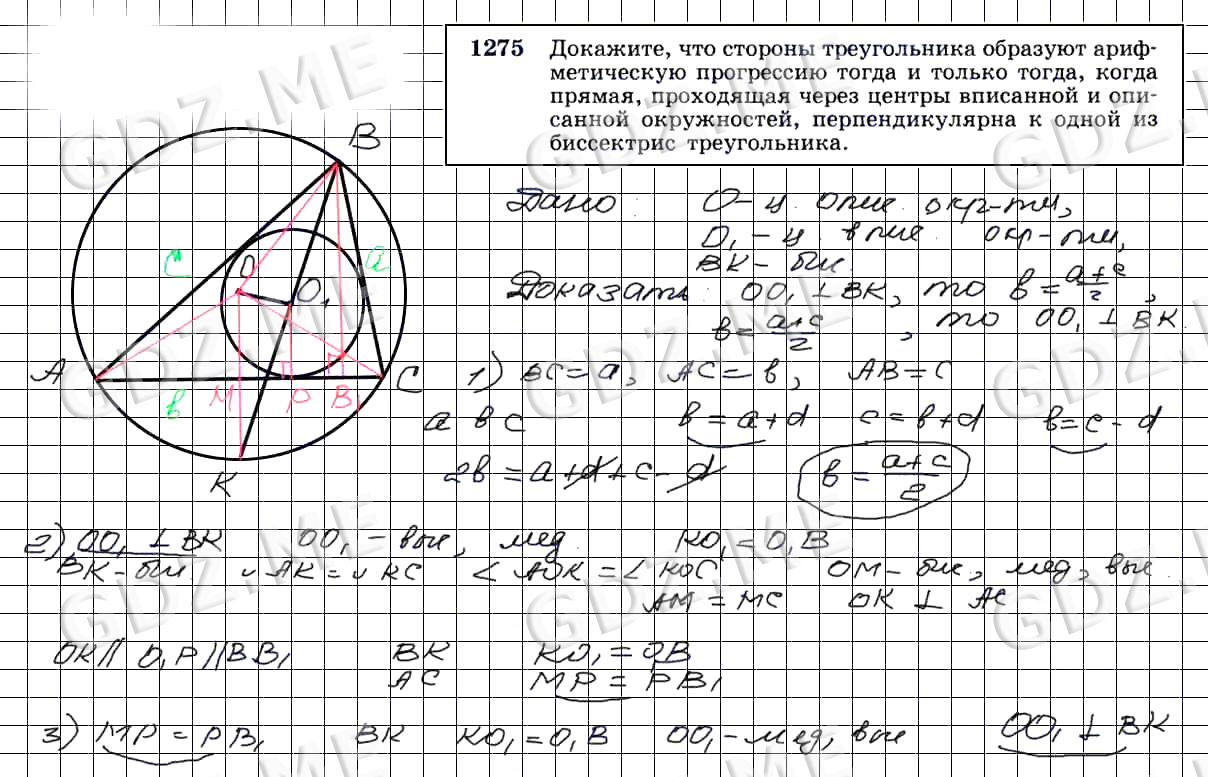 1275 Докажите, что стороны треугольника образуют ариф-
метическую прогрессию тогда и только тогда, когда
прямая, проходящая через центры вписанной и опи-
санной окружностей, перпендикулярна к одной из
биссектрис треугольника.
B
c
a
O
O₁
A
C
M
P
B₁
в
K
Дано: O – ц. опис. окр-ти,
O₁ – ц. впис. окр-ти,
BK – бис.
Доказать: OO₁ ⊥ BK, то в = (a+c)/2,
в = (a+c)/2, то OO₁ ⊥ BK.
1) BC = a, AC = в, AB = c
a в c в = a + d c = в + d в = c – d
2в = a + d + c – d в = (a+c)/2
2) OO₁ ⊥ BK OO₁ – выс, мед. KO₁ = O₁B
BK – бис. ∪ AK = ∪ KC ∠ AOK = ∠ KOC OM – бис, мед, выс.
AM = MC OK ⊥ AC
OK || O₁P || BB₁ BK KO₁ = OB
AC MP = PB₁
3) MP = PB₁ BK KO₁ = O₁B OO₁ – мед, выс OO₁ ⊥ BK
GDZ.ME
GDZ.ME
GDZ.ME
GDZ.ME
GDZ.ME
GDZ.ME
GDZ.ME
GDZ.ME
GDZ.ME